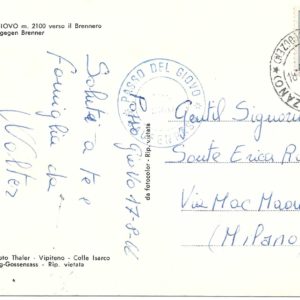 GIOVO m. 2100 verso il Brennero
gegen Brenner
Saluti a te e
famiglia da
Walter
Passo Giovo 17-8-
PASSO DEL GIOVO
da fotocolor - Rip. vietata
Gentil Signorin
Sante Erica R
Via Mac Maho
(Milano
Thaler - Vipiteno - Colle Isarco
g-Gossensass - Rip. vietata